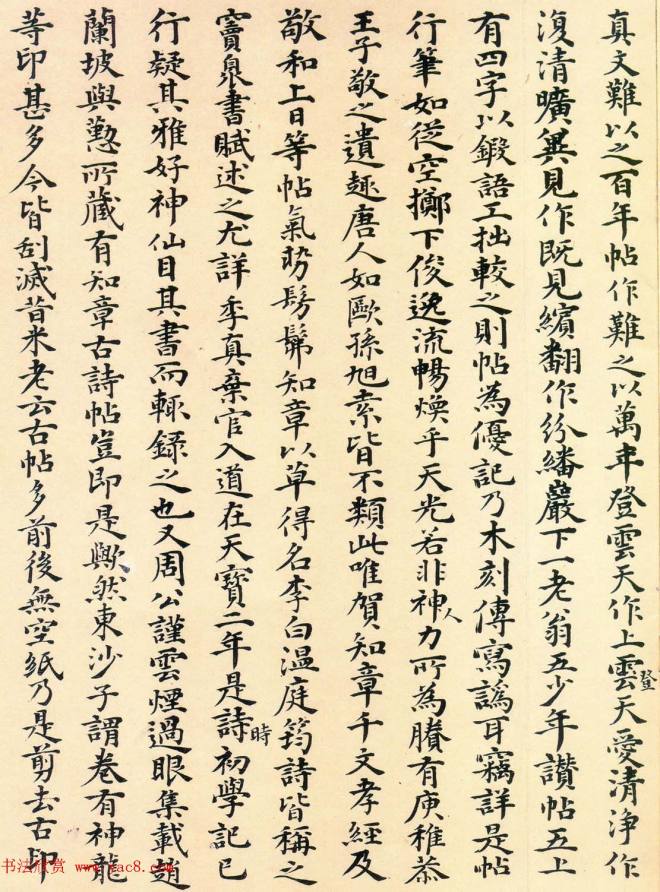 真文難以之百年帖作難之以萬年登雲天作上雲天愛清淨作
登
復清曠異見作既見繽翻作紛繙巖下一老翁五少年讚帖五上
有四字以鍛語工拙較之則帖為優記乃木刻傳寫譌耳竊詳是帖
行筆如從空擲下俊逸流暢煥乎天光若非神力所為賸有庾稚恭
人
王子敬之遺趣唐人如歐孫旭素皆不類此唯賀知章千文孝經及
敬和上日等帖氣勢髣髴知章以草得名李白温庭筠詩皆稱之
竇泉書賦述之尤詳季真棄官入道在天寶二年是詩初學記已
時
行疑其雅好神仙目其書而輙錄之也又周公謹雲煙過眼集載趙
蘭坡與懃所藏有知章古詩帖豈即是歟然東沙子謂卷有神龍
等印甚多今皆刮滅昔米老云古帖多前後無空紙乃是剪去古印
书法欣赏 www.yac8.com